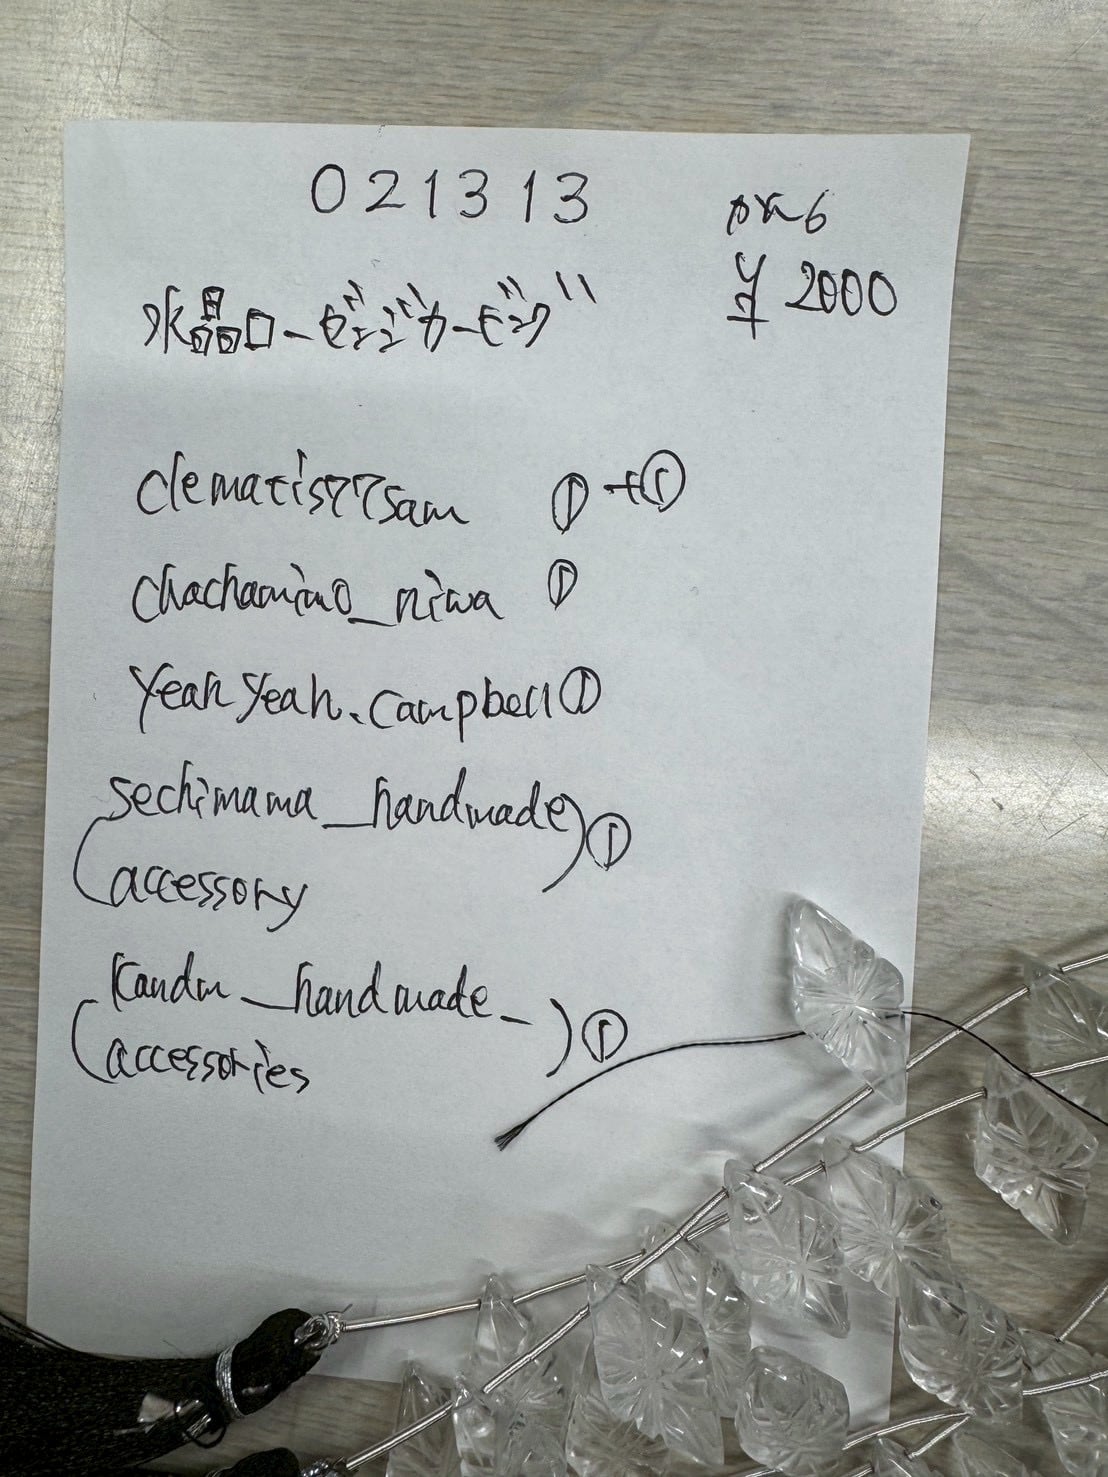 021313
¥2000
水晶ローゼンジカービング
clematis77sam ①+①
chachamimo_niwa ①
yeahyeah.campbell ①
sechimama_handmade
accessory ①
kandm_handmade_
accessories ①